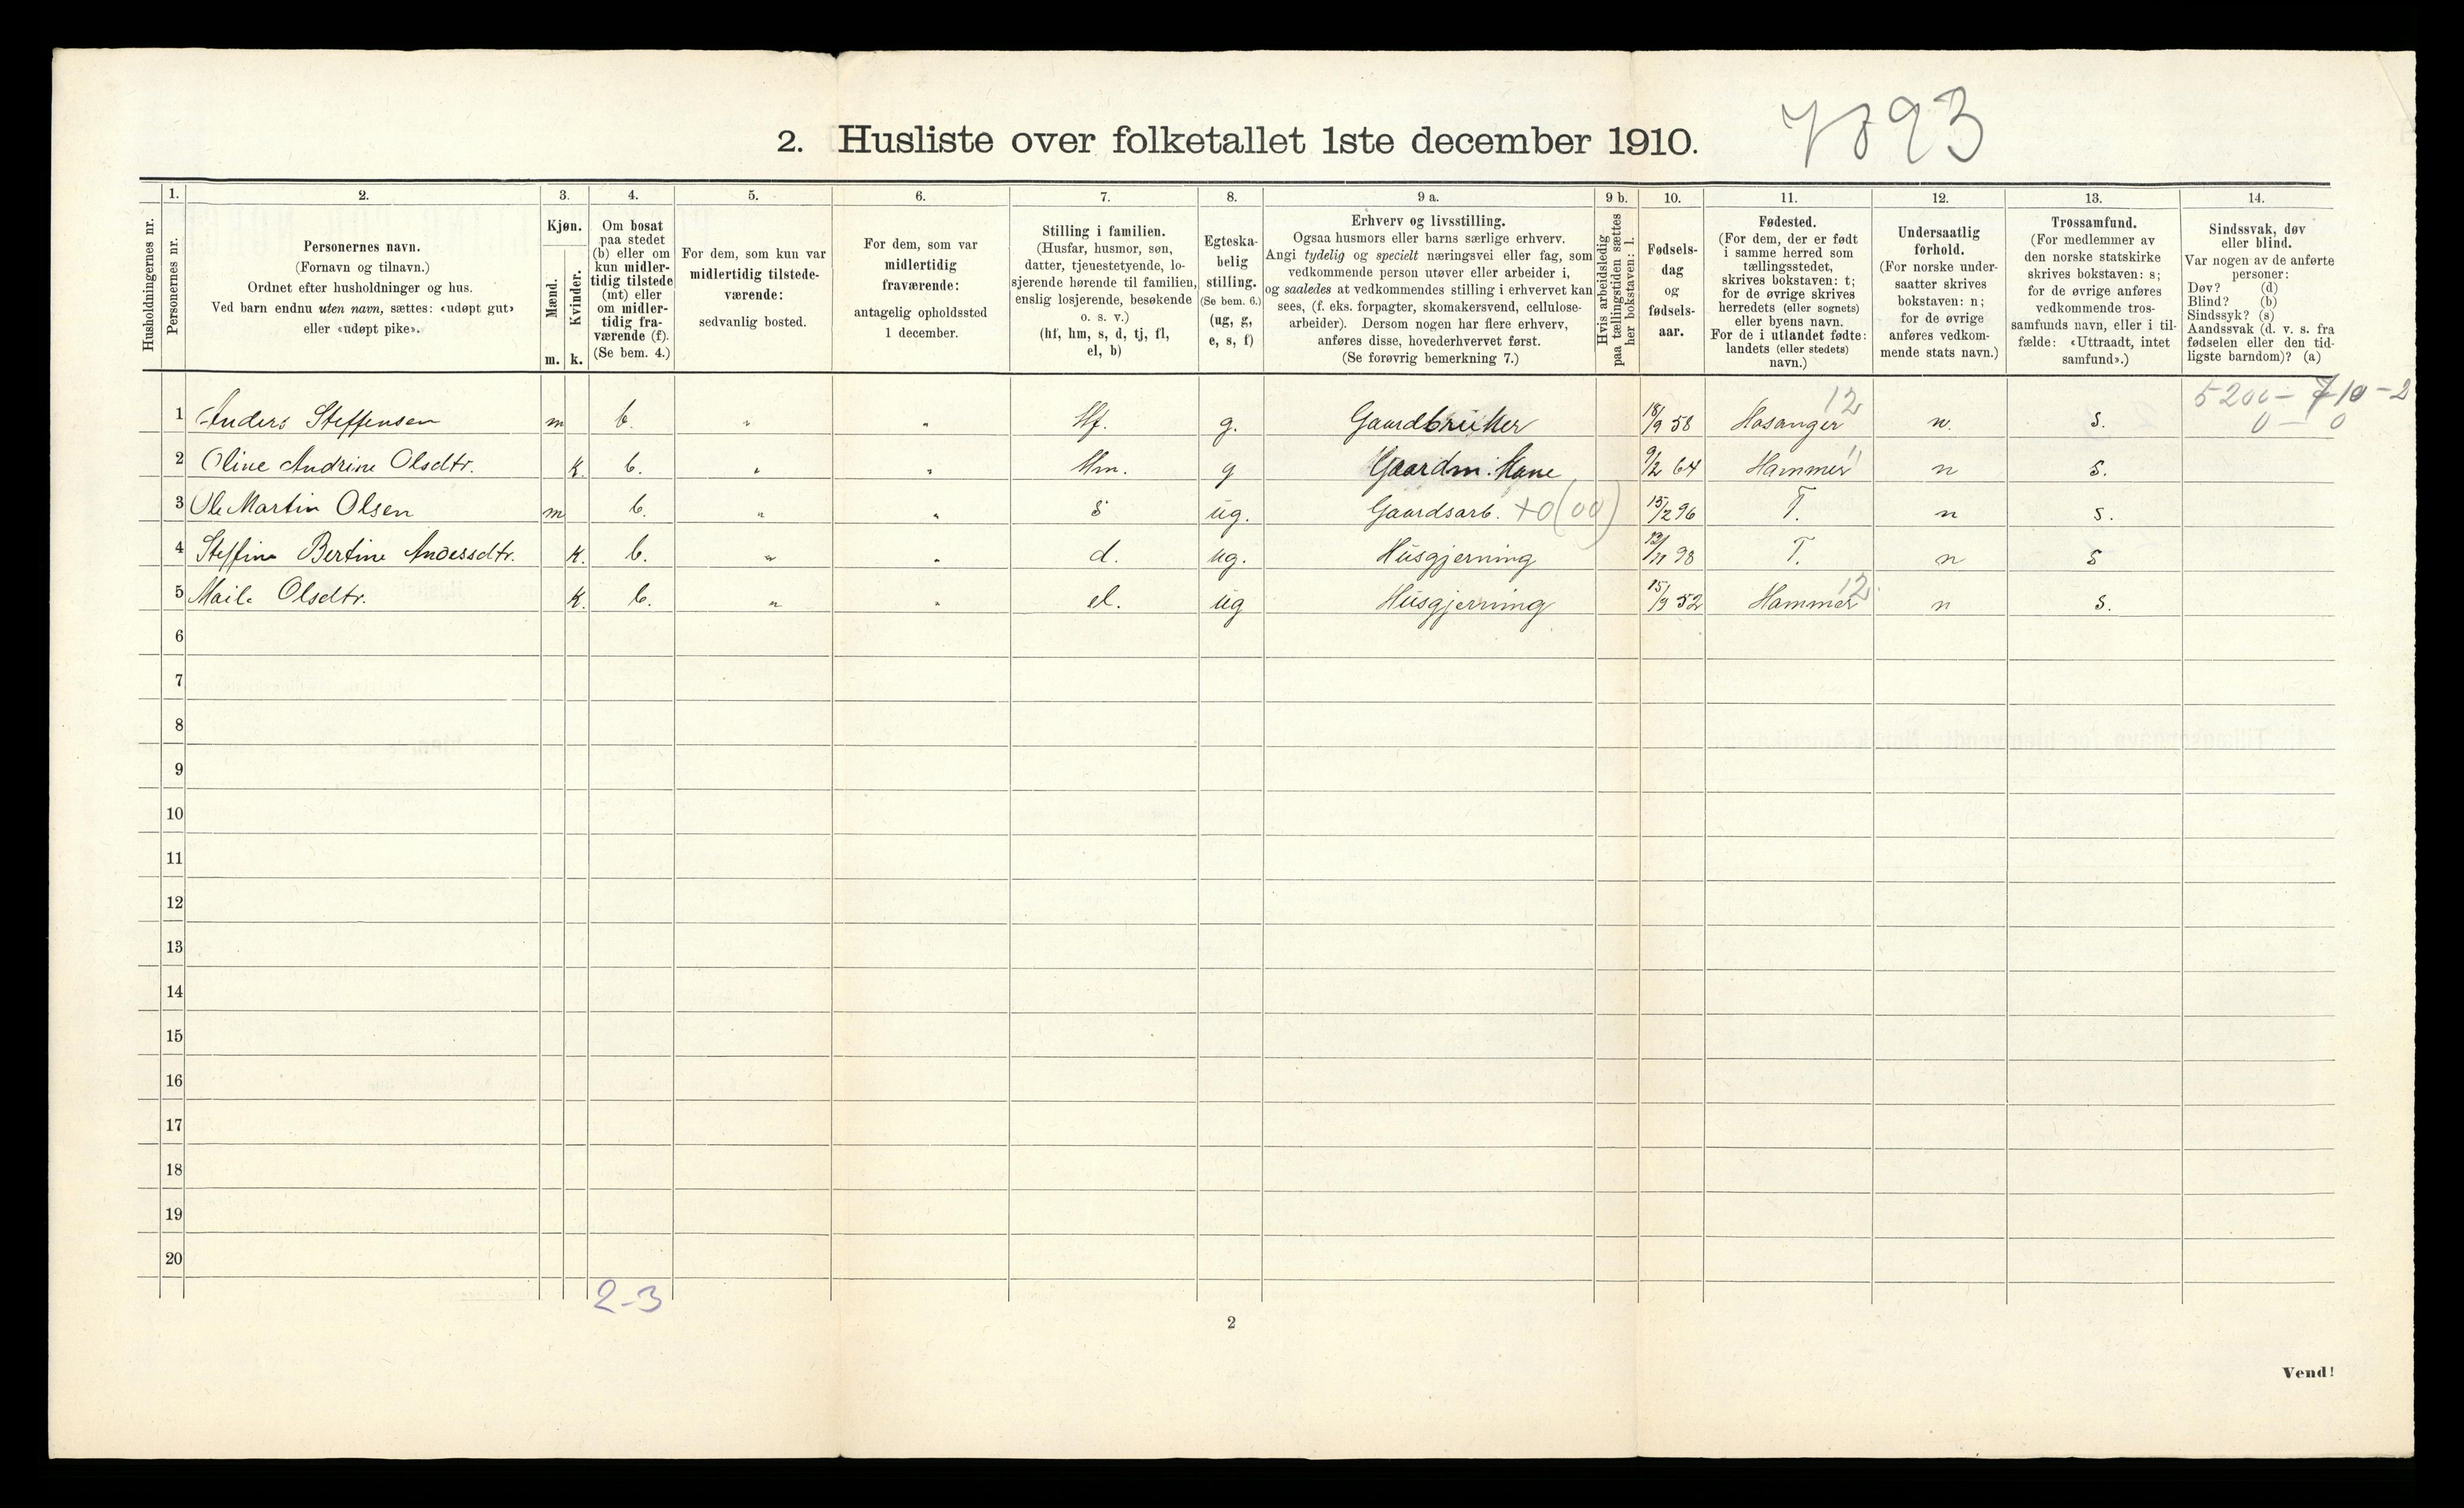 2. Husliste over folketallet 1ste december 1910. 7893
1. 2. 3. 4. 5. 6. 7. 8. 9 a. 9 b. 10. 11. 12. 13. 14.
Husholdningernes nr.
Personernes nr.
Personernes navn.
(Fornavn og tilnavn.)
Ordnet efter husholdninger og hus.
Ved barn endnu uten navn, sættes: «udøpt gut»
eller «udøpt pike».
Kjøn.
Mænd.
Kvinder.
m. k.
Om bosat
paa stedet
(b) eller om
kun midler-
tidig tilstede
(mt) eller
om midler-
tidig fra-
værende (f).
(Se bem. 4.)
For dem, som kun var
midlertidig tilstede-
værende:
sedvanlig bosted.
For dem, som var
midlertidig
fraværende:
antagelig opholdssted
1 december.
Stilling i familien.
(Husfar, husmor, søn,
datter, tjenestetyende, lo-
sjerende hørende til familien,
enslig losjerende, besøkende
o. s. v.)
(hf, hm, s, d, tj, fl,
el, b)
Egteska-
belig
stilling.
(Se bem. 6.)
(ug, g,
e, s, f)
Erhverv og livsstilling.
Ogsaa husmors eller barns særlige erhverv.
Angi tydelig og specielt næringsvei eller fag, som
vedkommende person utøver eller arbeider i,
og saaledes at vedkommendes stilling i erhvervet kan
sees, (f. eks. forpagter, skomakersvend, cellulose-
arbeider). Dersom nogen har flere erhverv,
anføres disse, hovederhvervet først.
(Se forøvrig bemerkning 7.)
Hvis arbeidsledig
paa tællingstiden sættes
her bokstaven: l.
Fødsels-
dag
og
fødsels-
aar.
Fødested.
(For dem, der er født
i samme herred som
tællingsstedet,
skrives bokstaven: t;
for de øvrige skrives
herredets (eller sognets)
eller byens navn.
For de i utlandet fødte:
landets (eller stedets)
navn.)
Undersaatlig
forhold.
(For norske under-
saatter skrives
bokstaven: n;
for de øvrige
anføres vedkom-
mende stats navn.)
Trossamfund.
(For medlemmer av
den norske statskirke
skrives bokstaven: s;
for de øvrige anføres
vedkommende tros-
samfunds navn, eller i til-
fælde: «Uttraadt, intet
samfund».)
Sindssvak, døv
eller blind.
Var nogen av de anførte
personer:
Døv? (d)
Blind? (b)
Sindssyk? (s)
Aandssvak (d. v. s. fra
fødselen eller den tid-
ligste barndom)? (a)
12 5200 - 710 - 2
1 Anders Steffensen m b. " " Hf. g. Gaardbruker 18/9 58 Hosanger n. s. 0 - 0
2 Oline Andrine Olsdtr. K. b. " " Hm. g Gaardm. Kone 9/2 64 Hammer 11 n s.
3 Ole Martin Olsen m b. " " s ug. Gaardsarb. +0(00) 15/2 96 T. n s.
4 Steffine Bertine Andersdtr. K. b. " " d. ug. Husgjerning 12/11 98 T. n s
5 Olsdtr. K. b. " " el. ug Husgjerning 15/9 52 Hammer 12. n s.
6
7
8
9
10
11
12
13
14
15
16
17
18
19
20
2-3
2
Vend!